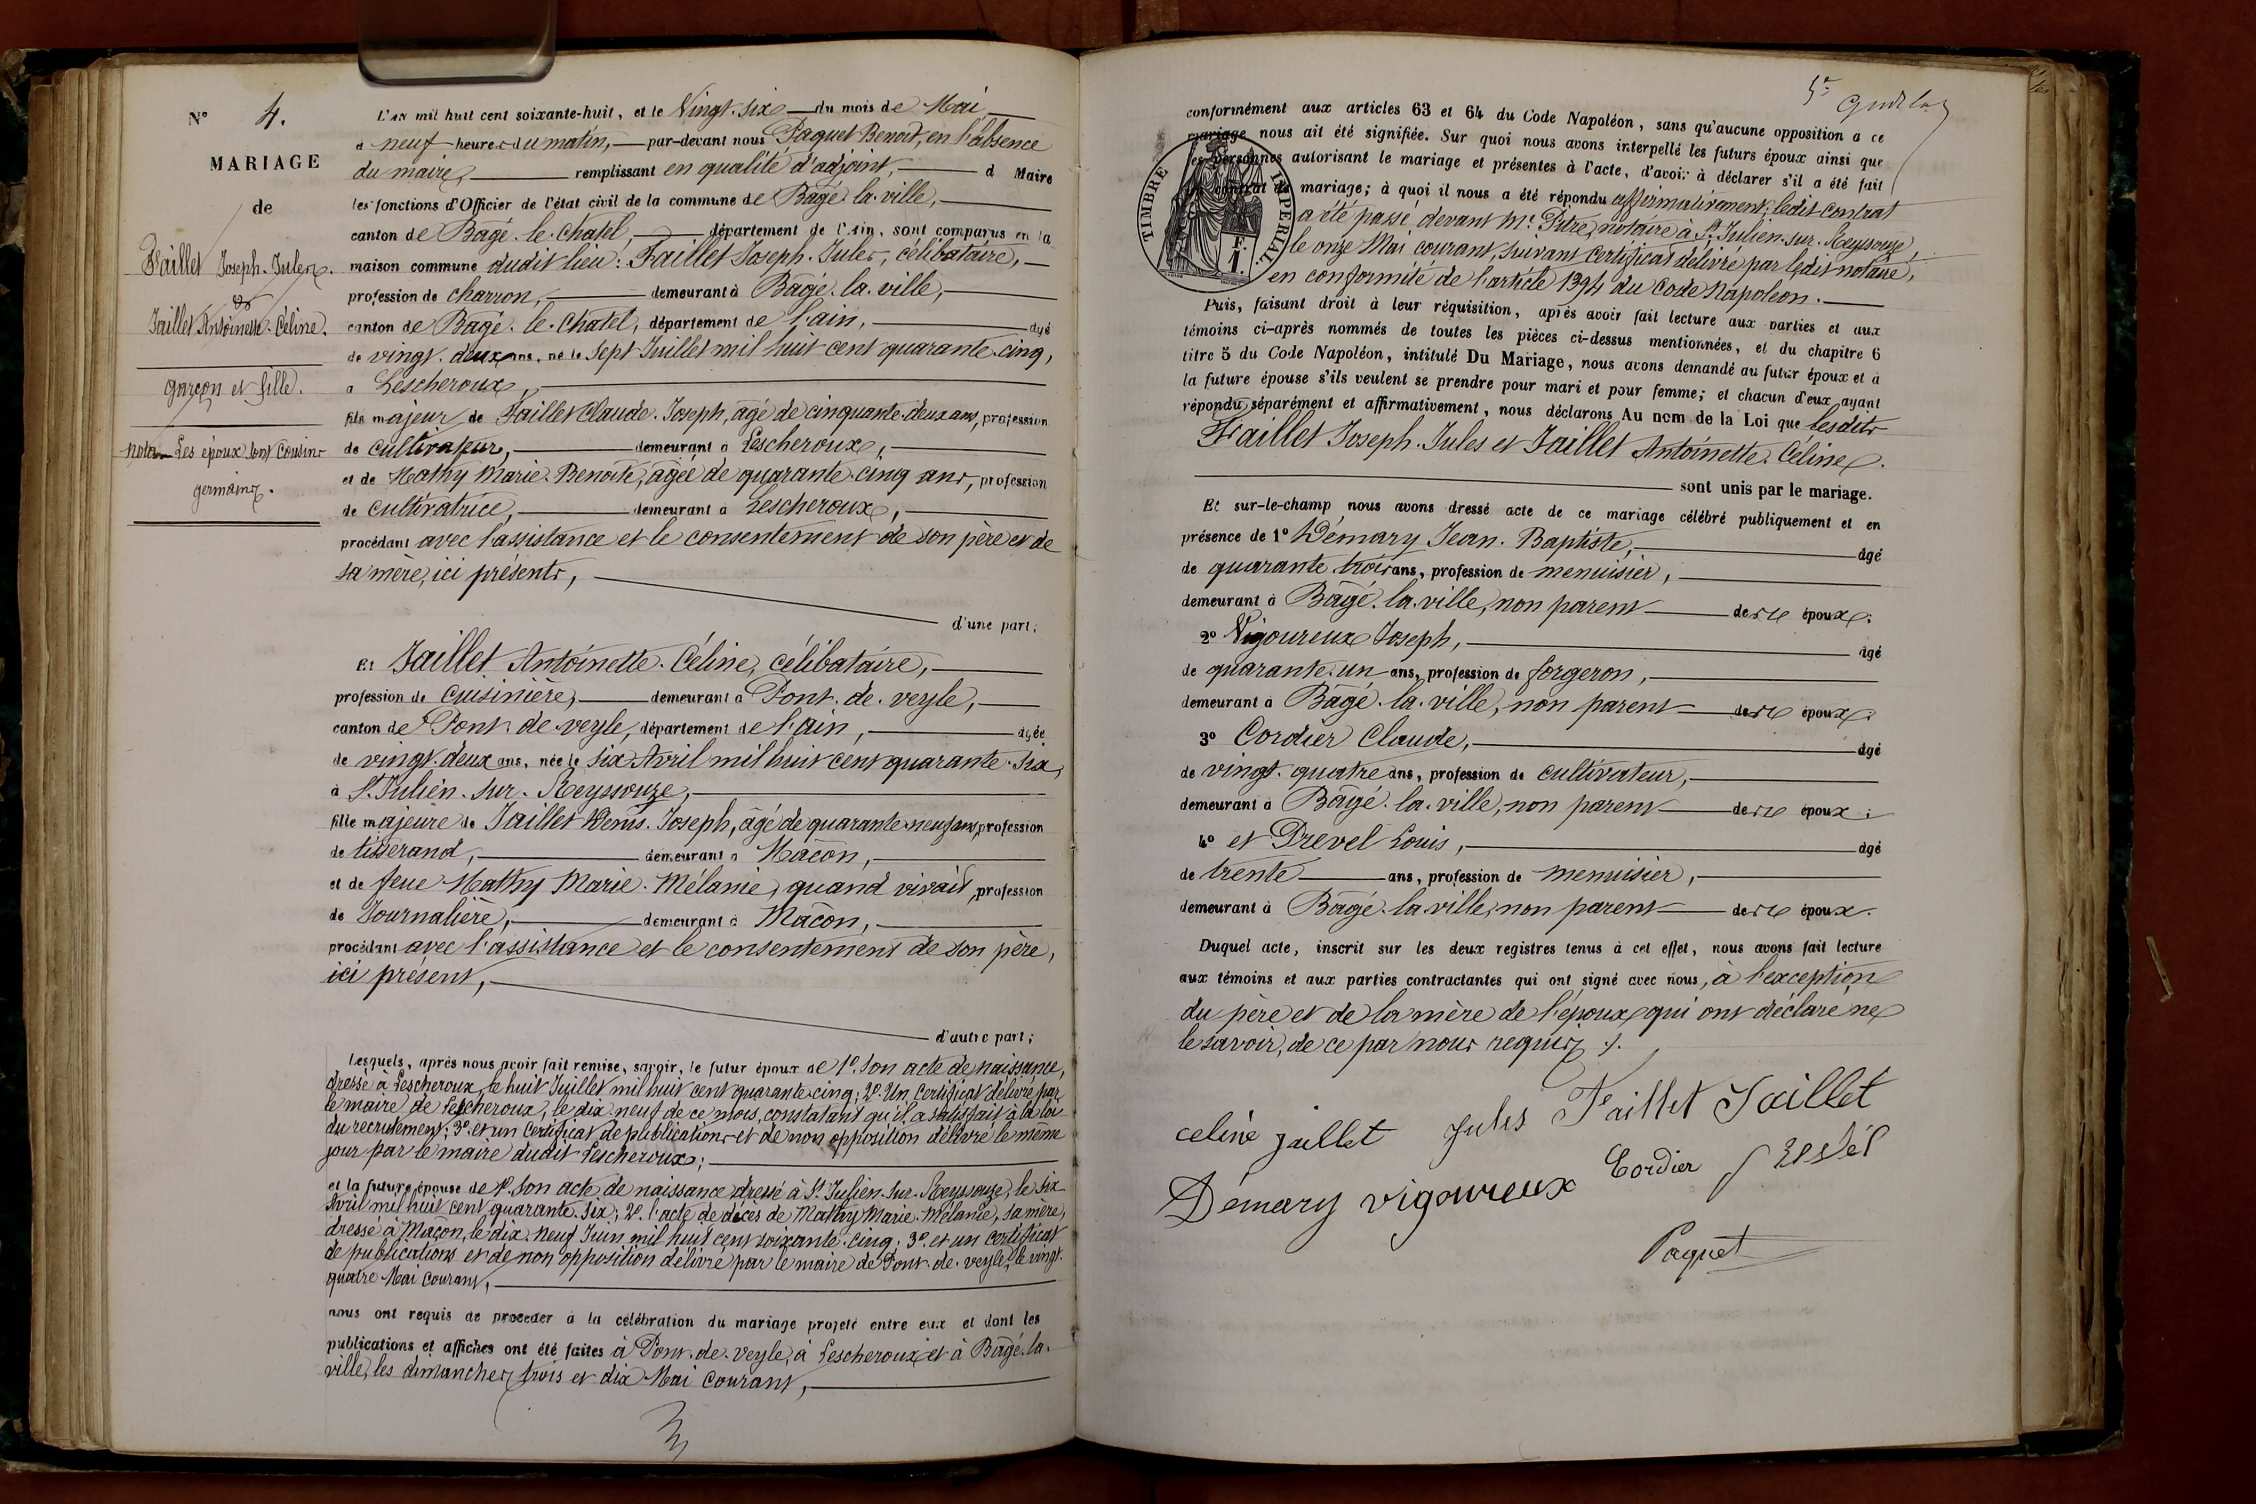 N° 4.
MARIAGE
de
Faillet Joseph-Jules.
et
Jaillet Antoinette-Céline.
garçon et fille.
nota Les époux sont cousins
germains.
L'an mil huit cent soixante-huit, et le Vingt-six du mois de Mai
à neuf heures du matin, par-devant nous Paquet Benoit, en l'absence
du maire, remplissant en qualité d'adjoint, d Maire
les fonctions d'Officier de l'état civil de la commune de Bâgé-la-ville,
canton de Bâgé-le-Chatel, département de l'Ain, sont comparus en la
maison commune dudit lieu: Faillet Joseph-Jules, célibataire,
profession de charron, demeurant à Bâgé-la-ville,
canton de Bâgé-le-Chatel, département de l'ain, âgé
de vingt-deux ans, né le sept Juillet mil huit cent quarante-cinq,
à Lescheroux,
fils majeur de Faillet Claude-Joseph, âgé de cinquante-deux ans, profession
de cultivateur, demeurant à Lescheroux,
et de Mathy Marie-Benoite, âgée de quarante-cinq ans, profession
de cultivatrice, demeurant à Lescheroux,
procédant avec l'assistance et le consentement de son père et de
sa mère, ici présents,
d'une part;
Et Jaillet Antoinette-Céline, célibataire,
profession de cuisinière, demeurant à Pont-de-veyle,
canton de Pont-de-veyle, département de l'ain, âgée
de vingt-deux ans, née le six Avril mil huit cent quarante-six,
à St Julien-sur-Reyssouze,
fille majeure de Jaillet Denis-Joseph, âgé de quarante-neuf ans, profession
de tisserand, demeurant à Mâcon,
et de feue Mathy Marie-Mélanie, quand vivait, profession
de Journalière, demeurant à Mâcon,
procédant avec l'assistance et le consentement de son père,
ici présent,
d'autre part;
Lesquels, après nous avoir fait remise, savoir, le futur époux de 1° Son acte de naissance,
dressé à Lescheroux, le huit Juillet mil huit cent quarante-cinq; 2° Un certificat délivré par
le maire de Lescheroux, le dix-neuf de ce mois, constatant qu'il a satisfait à la loi
du recrutement; 3° et un certificat de publications et de non opposition délivré le même
jour par le maire dudit Lescheroux;
et la future épouse de 1° Son acte de naissance dressé à St Julien-sur-Reyssouze, le six
Avril mil huit cent quarante-six; 2° l'acte de décès de Mathy Marie-Mélanie, sa mère,
dressé à Mâcon, le dix-neuf Juin mil huit cent soixante-cinq; 3° et un certificat
de publications et de non opposition délivré par le maire de Pont-de-veyle, le vingt-
quatre Mai courant,
nous ont requis de procéder à la célébration du mariage projeté entre eux et dont les
publications et affiches ont été faites à Pont-de-Veyle, à Lescheroux et à Bâgé-la-
ville, les dimanches trois et dix Mai courant,
conformément aux articles 63 et 64 du Code Napoléon, sans qu'aucune opposition a ce
mariage nous ait été signifiée. Sur quoi nous avons interpellé les futurs époux ainsi que
les personnes autorisant le mariage et présentes à l'acte, d'avoir à déclarer s'il a été fait
un contrat de mariage; à quoi il nous a été répondu affirmativement; ledit contrat
a été passé devant Me Pitre, notaire à St Julien-sur-Reyssouze,
le onze Mai courant, suivant certificat délivré par ledit notaire,
en conformité de l'article 1394 du Code Napoléon.
TIMBRE IMPERIAL
F.
1.
Puis, faisant droit à leur réquisition, après avoir fait lecture aux parties et aux
témoins ci-après nommés de toutes les pièces ci-dessus mentionnées, et du chapitre 6
titre 5 du Code Napoléon, intitulé Du Mariage, nous avons demandé au futur époux et à
la future épouse s'ils veulent se prendre pour mari et pour femme; et chacun d'eux ayant
répondu séparément et affirmativement, nous déclarons Au nom de la Loi que lesdits
Faillet Joseph-Jules et Jaillet Antoinette-Céline
sont unis par le mariage.
Et sur-le-champ nous avons dressé acte de ce mariage célébré publiquement et en
présence de 1° Démary Jean-Baptiste, âgé
de quarante trois ans, profession de menuisier,
demeurant à Bâgé-la-ville, non parent des époux.
2° Vigoureux Joseph, âgé
de quarante-un ans, profession de forgeron,
demeurant à Bâgé-la-ville, non parent des époux.
3° Cordier Claude, âgé
de vingt-quatre ans, profession de cultivateur,
demeurant à Bâgé-la-ville, non parent des époux;
4° et Drevel Louis, âgé
de trente ans, profession de menuisier,
demeurant à Bâgé-la-ville, non parent des époux.
Duquel acte, inscrit sur les deux registres tenus à cet effet, nous avons fait lecture
aux témoins et aux parties contractantes qui ont signé avec nous, à l'exception
du père et de la mère de l'époux qui ont déclaré ne
le savoir, de ce par nous requis.
celine jaillet Jules Faillet Jaillet
Démary vigoureux Cordier
Paquet